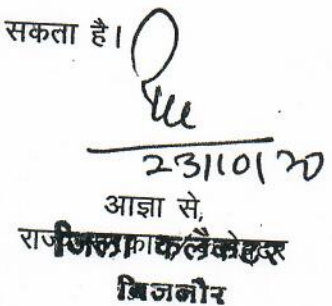 सकता है।
23/10/20
आज्ञा से,
जिला कलैक्टर
बिजनौर